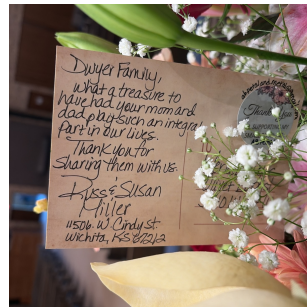 Dwyer Family,
what a treasure to
have had your mom and
dad play such an integral
part in our lives.
Thank you for
sharing them with us.
Russ & Susan
Miller
11506 W. Cindy St.
Wichita, KS 67212
Thank You